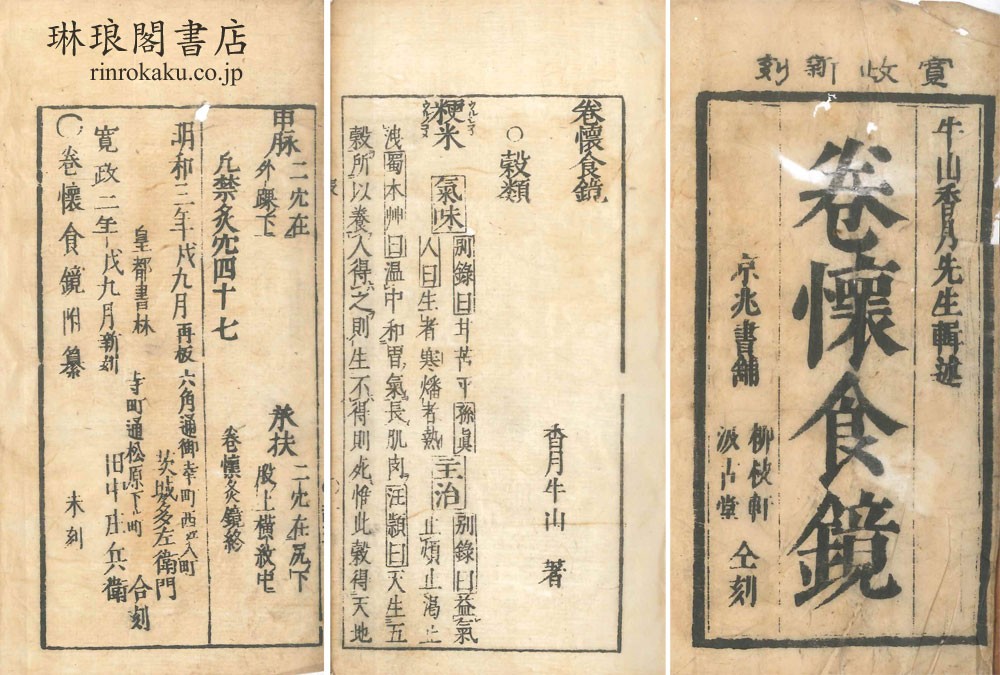 琳琅閣書店
rinrokaku.co.jp
寛政新刻
牛山香月先生輯述
卷懷食鏡
京兆書舗
柳枝軒
汲古堂
仝刻
卷懷食鏡
香月牛山 著
○穀類
粳米 氣味 別録曰甘苦平孫眞
人曰生者寒燔者熱 主治 別録曰益氣
止煩止渇止
洩蜀本艸曰温中和胃氣長肌肉汪頴曰天生五
穀所以養人得之則生不得則死惟此穀得天地
申脉 二穴在
外踝下
承扶 二穴在尻下
股上横紋中
凡禁灸穴四十七
卷懷灸鏡終
明和三年戌九月再板
六角通御幸町西江入町
茨城多左衛門
皇都書林
合刻
寛政二年戌九月新刻
寺町通松原下町
田中庄兵衛
○卷懷食鏡附纂 未刻